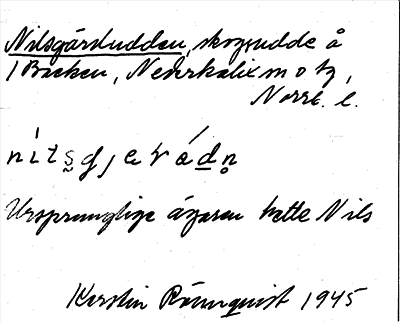 Nilsgårdudden, skogsudde å
1 Backen, Nederkalix m o tg,
Norrb. l.
Ursprunglige ägaren hette Nils
Kerstin Rönnquist 1945